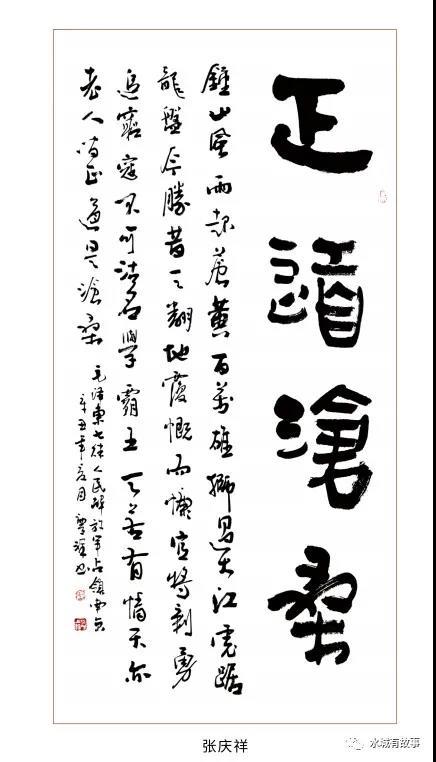 正道滄桑
鍾山風雨起蒼黄百萬雄獅過大江虎踞
龍盤今勝昔天翻地覆慨而慷宜將剩勇
追窮寇不可沽名學霸王天若有情天亦
老人间正道是滄桑
毛泽東七律人民解放军占領南京
辛丑年夏月慶祥書
张庆祥
水城有故事